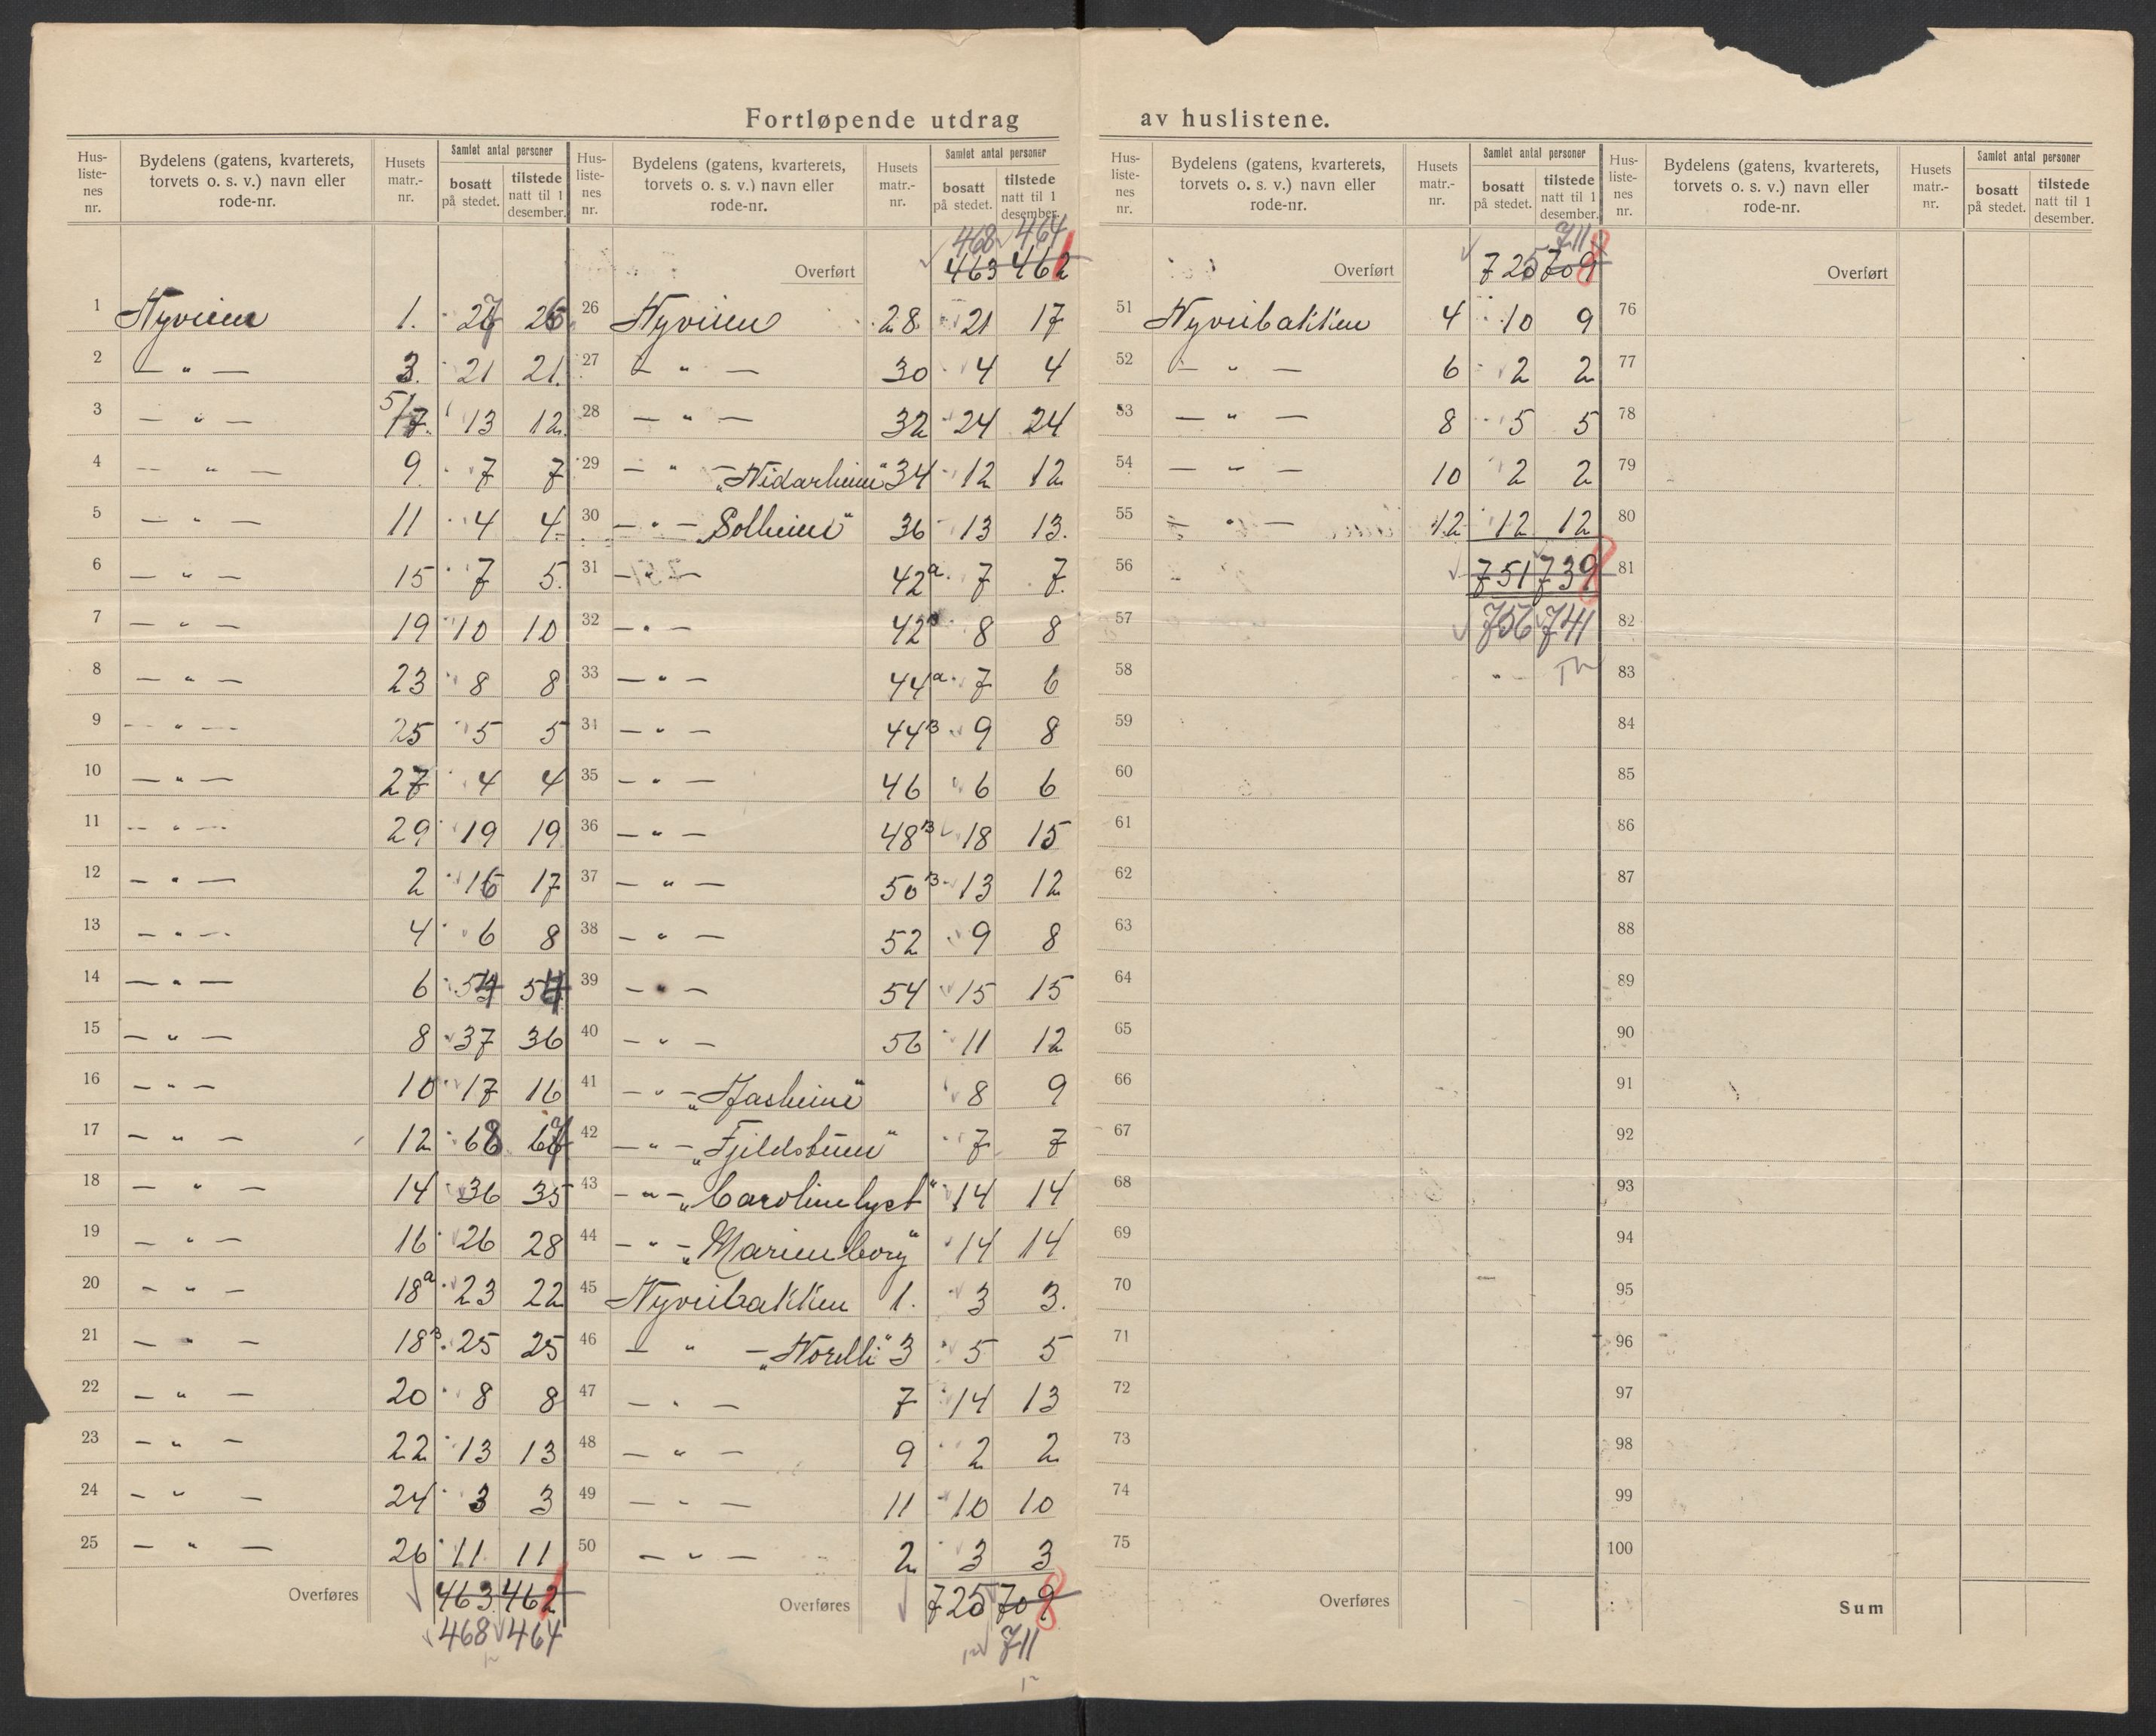 Fortløpende utdrag av huslistene.
Hus-liste-nes nr. | Bydelens (gatens, kvarterets, torvets o. s. v.) navn eller rode-nr. | Husets matr.-nr. | Samlet antal personer bosatt på stedet. | tilstede natt til 1 desember.
1 Nyveien 1. 27 26
2 — " — 3. 21 21.
3 — " — 5/7. 13 12.
4 — " — 9. 7 7
5 — " — 11 4 4.
6 — " — 15 7 5.
7 — " — 19 10 10
8 — " — 23 8 8
9 — " — 25 5 5
10 — " — 27 4 4
11 — " — 29 19 19
12 — " — 2 16 17
13 — " — 4 6 8
14 — " — 6 54 54
15 — " — 8 37 36
16 — " — 10 17 16
17 — " — 12 68
18 — " — 14 36 35
19 — " — 16 26 28
20 — " — 18a 23 22
21 — " — 18B. 25 25
22 — " — 20 8 8
23 — " — 22 13 13
24 — " — 24 3 3
25 — " — 26 11 11
Overføres 463 462
468 464
Hus-liste-nes nr. | Bydelens (gatens, kvarterets, torvets o. s. v.) navn eller rode-nr. | Husets matr.-nr. | Samlet antal personer bosatt på stedet. | tilstede natt til 1 desember.
468 464
Overført 463 462
26 Nyveien 28 21 17
27 — " — 30 4 4
28 — " — 32 24 24
29 — " — "Nidarheim" 34 12 12
30 — " — "Solheim" 36 13 13.
31 — " — 42a. 7 7.
32 — " — 42B 8 8
33 — " — 44a. 7 6
34 — " — 44B 9 8
35 — " — 46 6 6
36 — " — 48B 18 15
37 — " — 50B 13 12
38 — " — 52 9 8
39 — " — 54 15 15
40 — " — 56 11 12
41 — " — 8 9
42 — " — 7 7
43 — " — "Carolinelyst" 14 14
44 — " — "Marienborg" 14 14
45 Nyveibakken 1. 3 3.
46 — " — "Norelli" 3 5 5
47 — " — 7 14 13
48 — " — 9 2 2
49 — " — 11 10 10
50 — " — 2 3 3
Overføres 725 708
711
Hus-liste-nes nr. | Bydelens (gatens, kvarterets, torvets o. s. v.) navn eller rode-nr. | Husets matr.-nr. | Samlet antal personer bosatt på stedet. | tilstede natt til 1 desember.
711
Overført 725 709
51 Nyveibakken 4 10 9
52 — " — 6 2 2
53 — " — 8 5 5
54 — " — 10 2 2
55 — " — 12 12 12
56 751 739
57 756 741
58
59
60
61
62
63
64
65
66
67
68
69
70
71
72
73
74
75
Overføres
Hus-liste-nes nr. | Bydelens (gatens, kvarterets, torvets o. s. v.) navn eller rode-nr. | Husets matr.-nr. | Samlet antal personer bosatt på stedet. | tilstede natt til 1 desember.
Overført
76
77
78
79
80
81
82
83
84
85
86
87
88
89
90
91
92
93
94
95
96
97
98
99
100
Sum